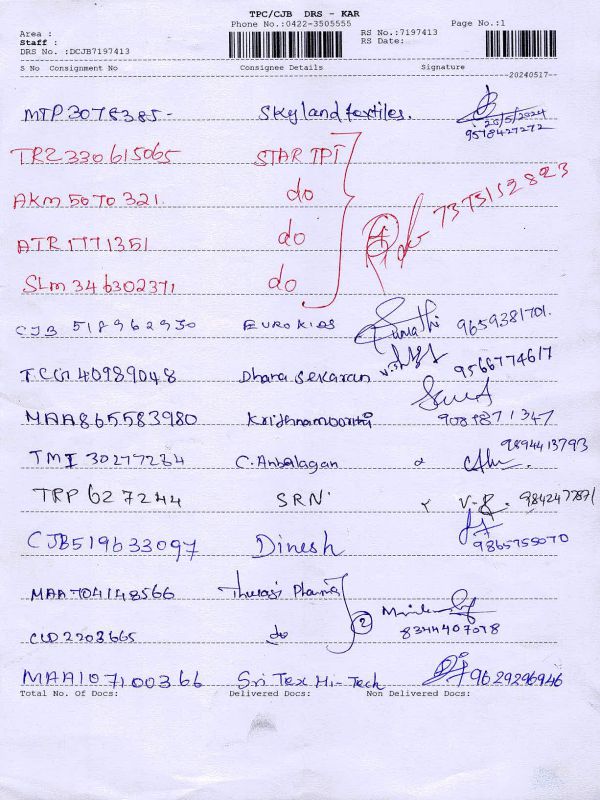 TPC/CJB DRS - KAR
Phone No.:0422-3505555 Page No.:1
Area : RS No.:7197413
Staff : RS Date:
DRS No. :DCJB7197413
S No Consignment No Consignee Details Signature
20240517
MTP 3078385- Skyland textiles. 20/5/2024
9578427272
TRZ 330615065 STAR TPT
AKM 5070 321. do 7373152823
ATR 1771351 do
SLM 346302371 do
CJB 518962930 EUROKIDS Sumathi 9659381701.
TCG 40989048 Dhana sekaran 9566774617
MAA865583980 Krishnamoorthi 9089871347
TMI 30277234 C. Anbalagan 9894413793
TRP 627244 SRN V.R. 9842477871
CJB519633097 Dinesh 9865755070
MAA704148566 Thulasi Pharma
2
CLD2203665 do 8344407078
MAA107100366 Sri Tex Hi-Tech 9629296946
Total No. Of Docs: Delivered Docs: Non Delivered Docs: